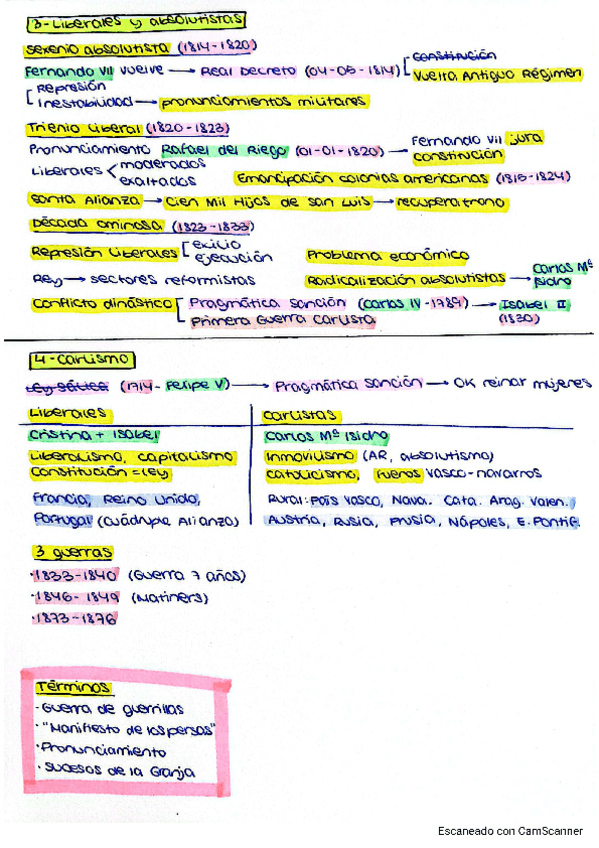 3-Liberales y absolutistas
Sexenio absolutista (1814-1820)
Fernando VII vuelve → Real Decreto (04-05-1814) [ Constitución
Vuelta Antiguo Régimen
[ Represión
Inestabilidad → pronunciamientos militares
Trienio Liberal (1820-1823)
Pronunciamiento Rafael del Riego (01-01-1820) → Fernando VII jura
constitución
Liberales < moderados
exaltados
Emancipación colonias americanas (1815-1824)
Santa Alianza → Cien Mil Hijos de San Luis → recupera trono
Década ominosa (1823-1833)
Represión liberales [ exilio
ejecución
Problema económico
Rey → sectores reformistas
Radicalización absolutistas → Carlos Mª
Isidro
Conflicto dinástico [ Pragmática Sanción (Carlos IV-1789) → Isabel II
(1830)
Primera Guerra Carlista
4-Carlismo
Ley Sálica (1714- Felipe V) → Pragmática Sanción → OK reinar mujeres
Liberales
Carlistas
Cristina + Isabel
Carlos Mª Isidro
Liberalismo, capitalismo
Inmovilismo (AR, absolutismo)
Constitución = Ley
Catolicismo, Fueros vasco-navarros
Francia, Reino Unido,
Rural: País Vasco, Nava. Cata. Arag. Valen.
Portugal (Cuádruple Alianza)
Austria, Rusia, Prusia, Nápoles, E. Pontif.
3 guerras
·1833-1840 (Guerra 7 años)
·1846-1849 (Matiners)
·1873-1876
Términos
· Guerra de guerrillas
· "Manifiesto de los persas"
· Pronunciamiento
· Sucesos de la Granja
Escaneado con CamScanner